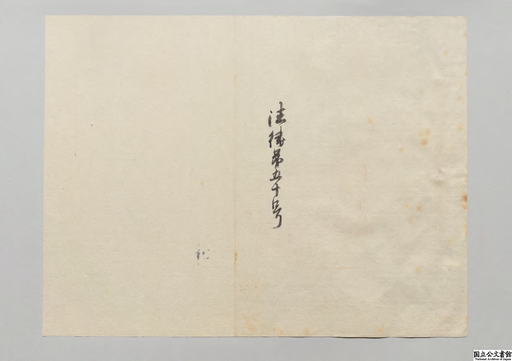 法律第五十号
国立公文書館
National Archives of Japan